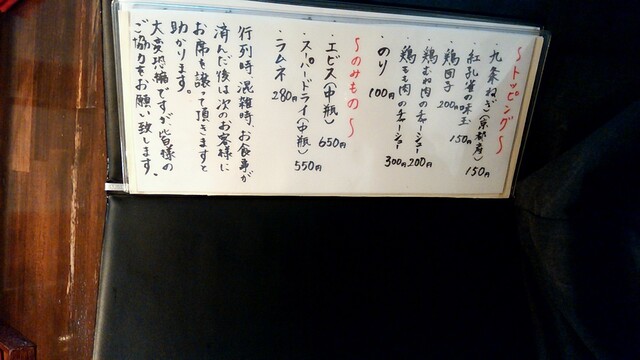 〜トッピング〜
九条ねぎ(京都産) 150円
紅孔雀の味玉 150円
鶏団子 200円
鶏むね肉のチャーシュー 200円
鶏もも肉のチャーシュー 300円
のり 100円
〜のみもの〜
エビス(中瓶) 650円
スーパードライ(中瓶) 550円
ラムネ 280円
行列時、混雑時、お食事が
済んだ後は次のお客様に
お席を譲って頂きますと
助かります。
大変恐縮ですが皆様の
ご協力をお願い致します。